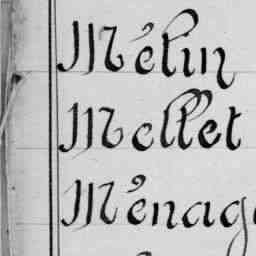 Mélin
Mellet
Ménag